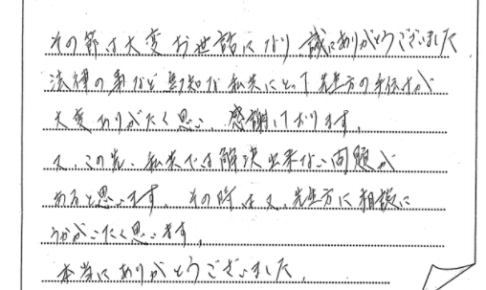 その節は大変お世話になり、誠にありがとうございました
法律の事など無知な私共にとって先生方の手伝いが
大変ありがたく思い、感謝しております。
又、この先、私共では解決出来ない問題が
あると思います。その時は又、先生方に相談に
うかがいたく思います。
本当にありがとうございました。